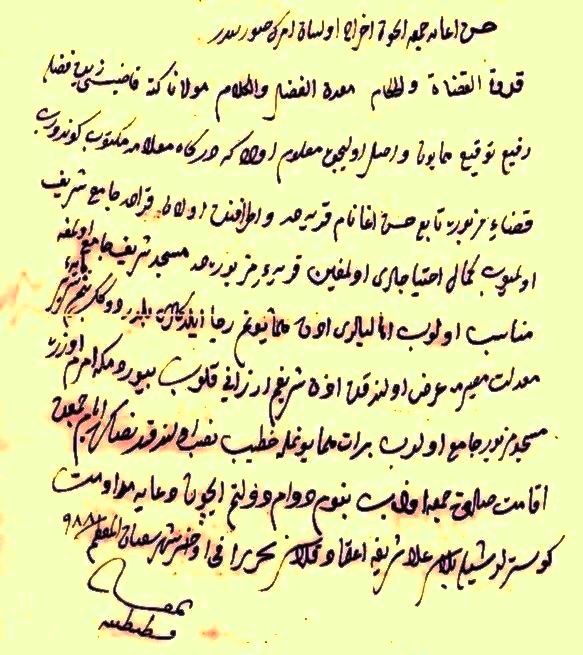 حسن اغایه جمعه ایچون اخراج اولنان امرك صورتیدر
قدوة القضاة والحكام معدن الفضل والكلام مولانا كته قاضیسی زید فضله
رفیع توقیع همایون واصل اولیجق معلوم اولا كه درگاه معلامه مكتوب كوندروب
قضاء مزبوره تابع حسن اغا نام قریه ده و اطرافنده اولان قراده جامع شریف
اولمیوب كمال احتیاجلری اولمغین قریهٔ مزبوره ده مسجد شریف جامع اولمغه
مناسب اولوب اهالیلری اذن همایونم رجا ایلدكلرین بلدردوكك
معدلت عرض اولندقده اذن شریفم ارزانی قلوب بیوردم كه امرم اوزره
مسجد مزبور جامع اولوب برات همایونمله خطیب نصب اولندقدنصكره ایام جمعه ده
اقامت صلوة جمعه اولنوب بنوم دوام دولتم ایچون دعایه مداومت
كوستره لر شویله بلاسن علامت شریفه اعتماد قلاسن تحریرا فی اواخر شهر شعبان المعظم ٩٨٨
بمقام
قسطنطنیه